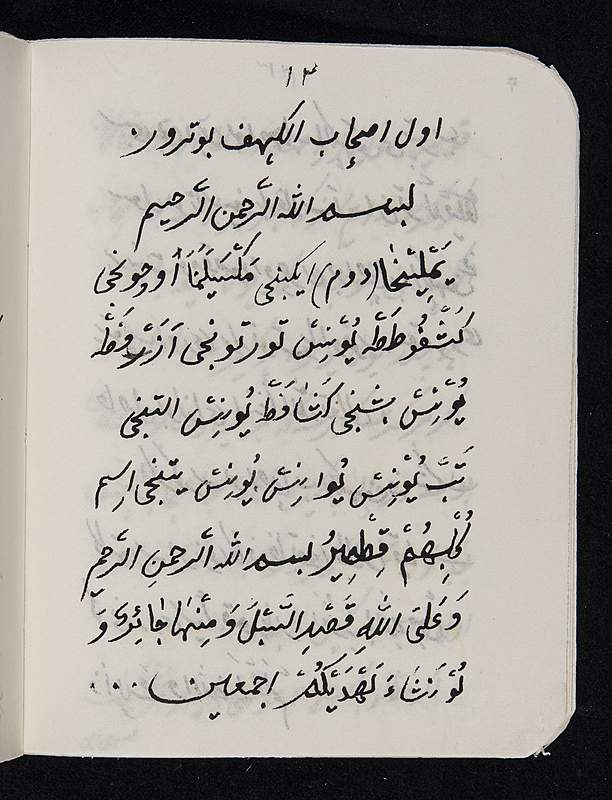 ١٣
اول اصحاب الكهف بوتردر.
بسم الله الرحمن الرحيم
يَمْلِيْنخَا (دوم) ايكنجى مَكْسَيلَمَنَا اوچونجى
كَشْفُوطَطَهْ يُوْنِسْ تورتونجى اَزَرْفَطْ
يُوْنِسْ بشنجى كَشَافَطْ يُونِسْ التنجى
تَبَّ يُوْنِسْ يُوانِسْ يُونِسْ يتنجى اسم
كُلْبِهُمْ قِطْمِيرُ بسم الله الرحمنِ الرحيم
وَعَلىَ اللّٰهِ قَصْدِ السَّبْلَ وَمِنْهٰا جٰائِرِ وَ
لَوْ نَشٰاءَ لَهَدَيْكُمْ اجمعين ...